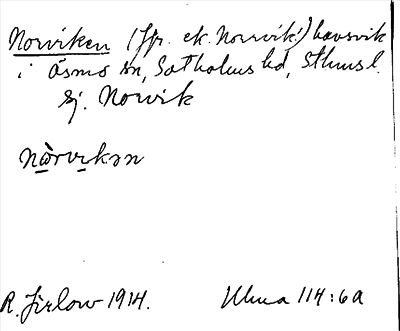 Norviken (fpr. ek. Norrvik!) havsvik
i Ösmo sn, Sotholms hd, Sthms l.
Ej. Norvik
nàrvikən
R. Jirlow 1914. Ulma 114:6a